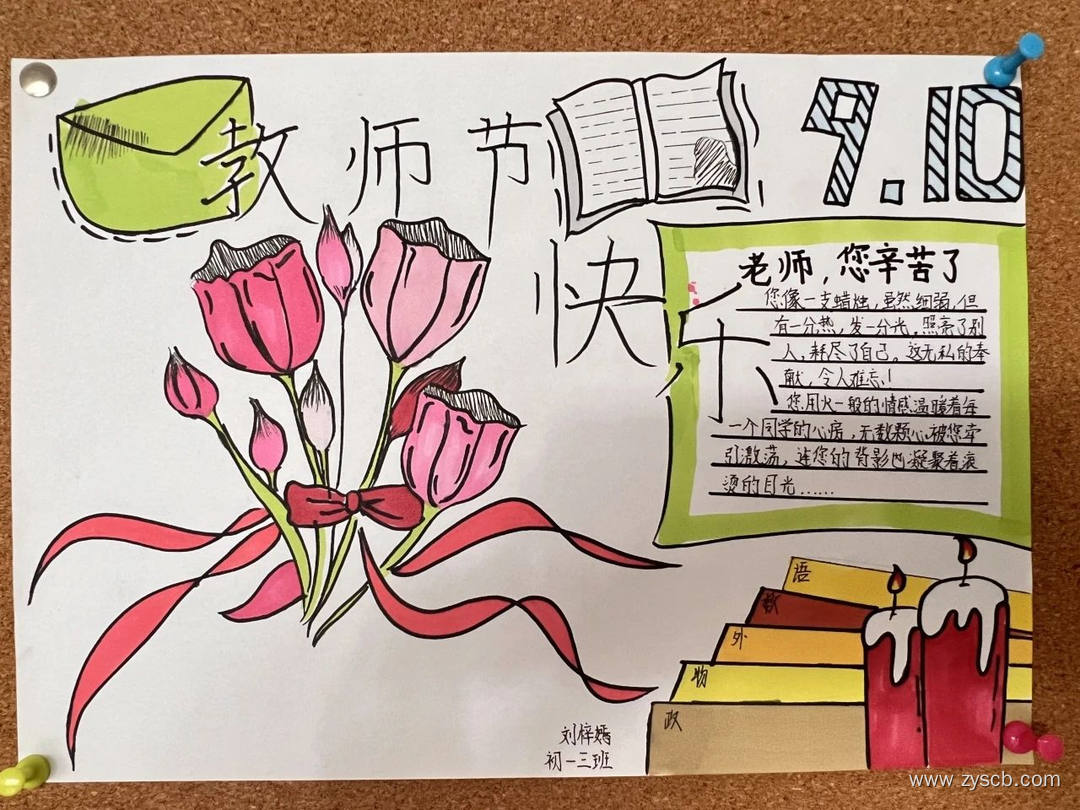 教师节
快乐
9.10
老师，您辛苦了
您像一支蜡烛，虽然细弱，但
有一分热，发一分光，照亮了别
人，耗尽了自己。这无私的奉
献，令人难忘！
您用火一般的情感温暖着每
一个同学的心房，无数颗心被您牵
引激荡，连您的背影也凝聚着滚
烫的目光……
语
数
外
物
政
刘梓嫣
初一三班
www.zyscb.com